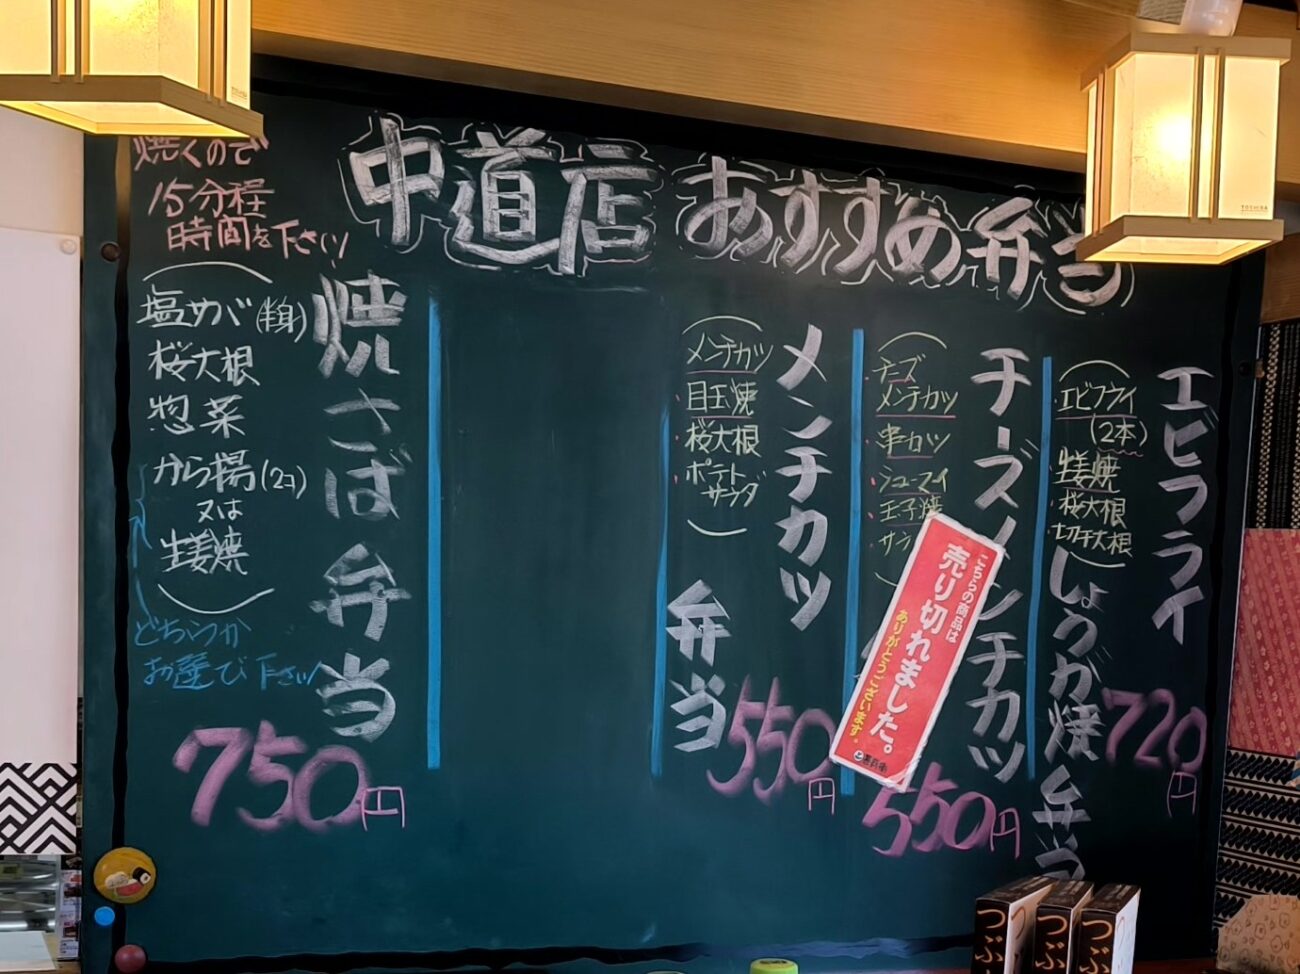 中道店 おすすめ弁当
エビフライ
しょうが焼弁当
エビフライ
(2本)
生姜焼
桜大根
切干大根
720円
チーズメンチカツ
チーズ
メンチカツ
串カツ
シューマイ
玉子焼
サラ
550円
こちらの商品は
売り切れました。
ありがとうございます。
メンチカツ
弁当
メンチカツ
目玉焼
桜大根
ポテト
サラダ
550円
焼さば弁当
焼くので
15分程
時間を下さい
塩さば(半身)
桜大根
惣菜
から揚(2コ)
又は
生姜焼
どちらか
お選び下さい
750円
TOSHIBA
TOSHIBA
つぶ
つぶ
つぶ